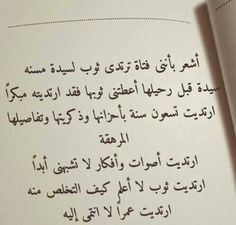 أشعر بأننى فتاة ترتدى ثوب لسيدة مسنه
سيدة قبل رحيلها أعطتنى ثوبها فقد ارتديته مبكراً
ارتديت تسعون سنة بأحزانها وذكريتها وتفاصيلها
المرهقة
ارتديت أصوات وأفكار لا تشبهنى أبداً
ارتديت ثوب لا أعلم كيف التخلص منه
ارتديت عمراً لا انتمى إليه